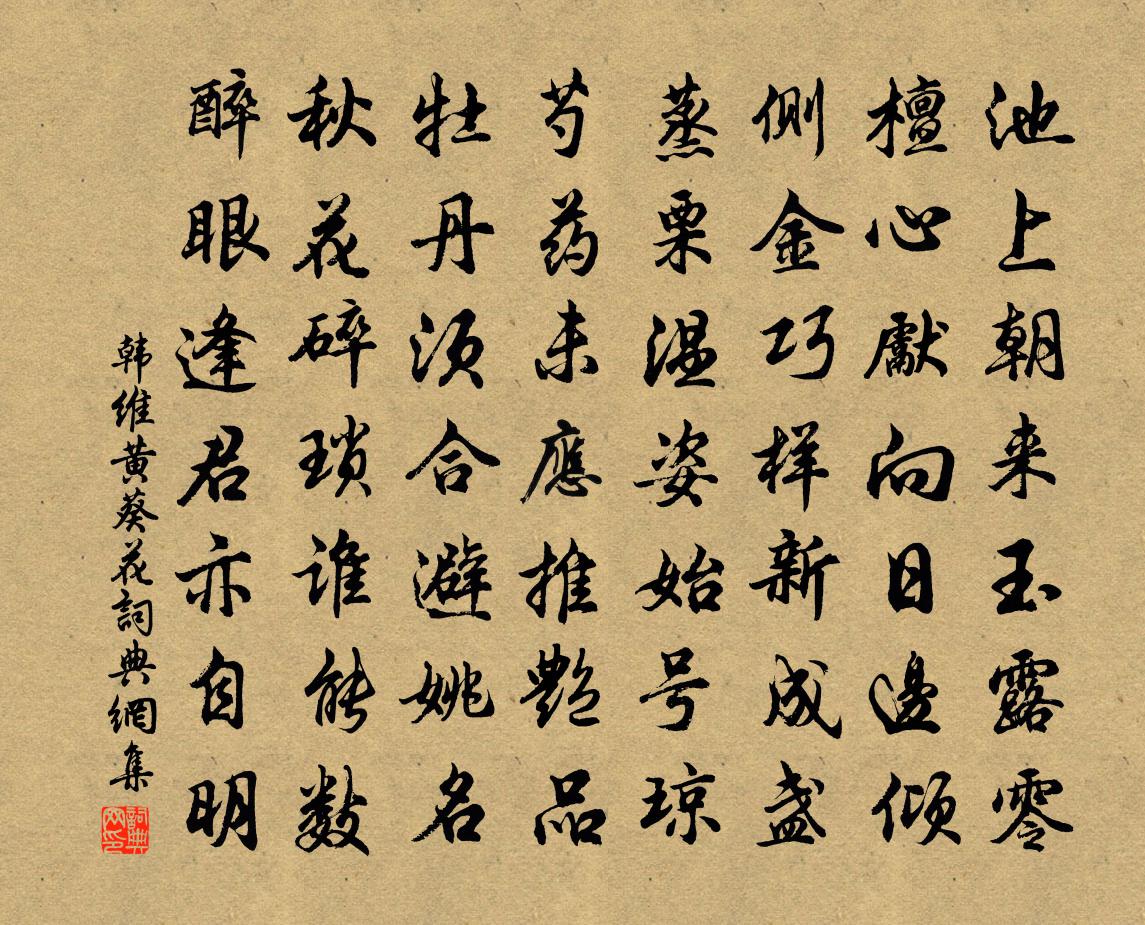 池上朝来玉露零
檀心獻向日邊倾
侧金巧样新成盏
蒸栗温姿始号琼
芍药未應推艷品
牡丹须合避姚名
秋花碎琐谁能数
醉眼逢君亦自明
韩维黄葵花詞典網集
詞典網印